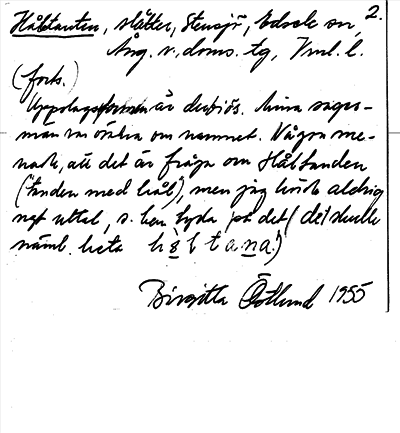 2.
Håltanten, slåtter, Stensjö, Edsele sn,
Ång. v. doms. tg, Vnl. l.
(forts.)
Uppslagsformen är dubiös. Mina sages-
män var osäkra om namnet. Någon me-
nade, att det är fråga om Håltanden
("tanden med hål"), men jag hörde aldrig
ngt uttal, s. kan tyda på det (det skulle
näml. heta håltana.)
Birgitta Östlund 1955